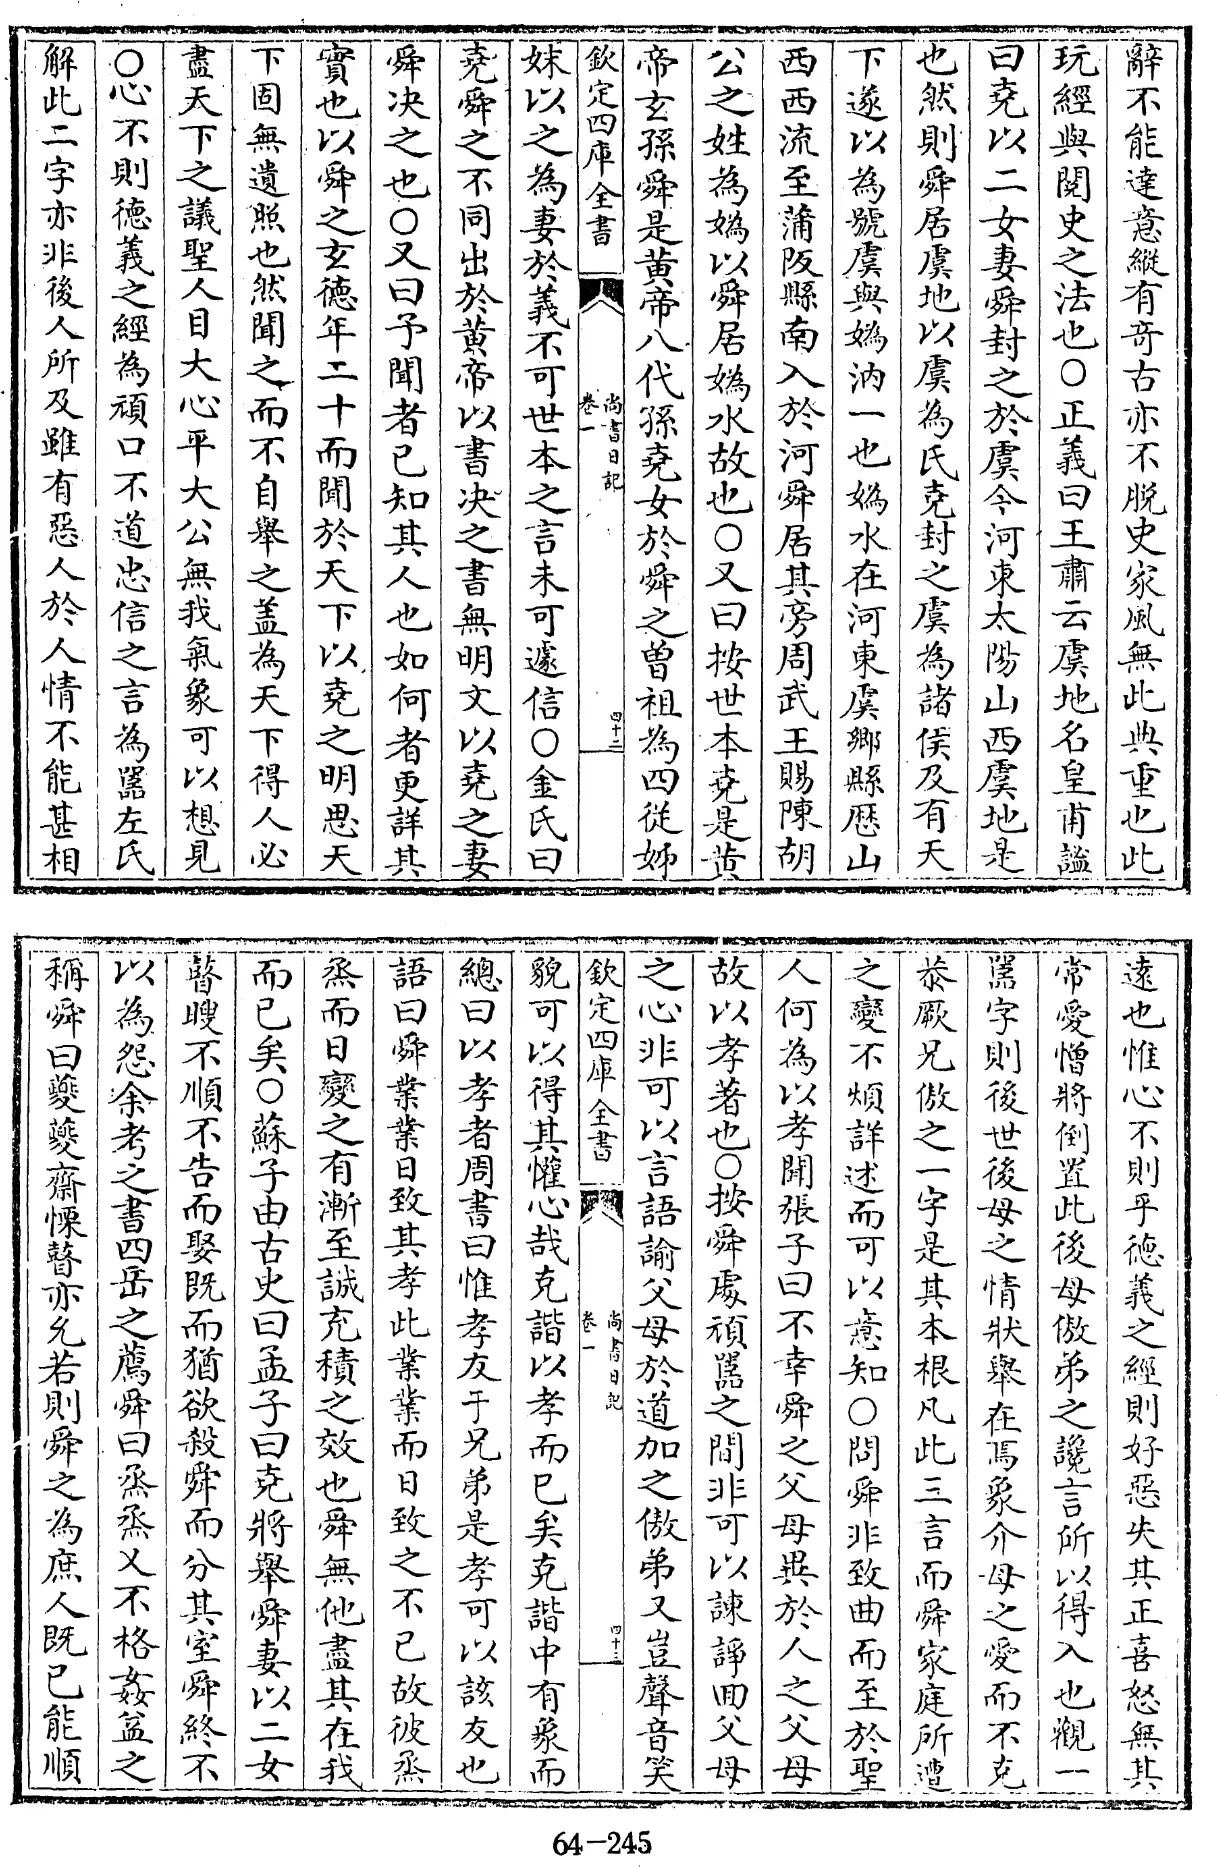 辭不能達意縱有奇古亦不脱史家風無此典重也此
玩經與閱史之法也○正義曰王肅云虞地名皇甫謐
曰堯以二女妻舜封之於虞今河東太陽山西虞地是
也然則舜居虞地以虞為氏堯封之虞為諸侯及有天
下遂以為號虞與媯汭一也媯水在河東虞鄉縣歴山
西西流至蒲阪縣南入於河舜居其旁周武王賜陳胡
公之姓為媯以舜居媯水故也○又曰按世本堯是黄
帝玄孫舜是黄帝八代孫堯女於舜之曽祖為四從姊
欽定四庫全書
尚書日記
卷一
四十二
妹以之為妻於義不可世本之言未可遽信○金氏曰
堯舜之不同出於黄帝以書决之書無明文以堯之妻
舜决之也○又曰予聞者已知其人也如何者更詳其
實也以舜之玄德年二十而聞於天下以堯之明思天
下固無遺照也然聞之而不自舉之盖為天下得人必
盡天下之議聖人目大心平大公無我氣象可以想見
○心不則德義之經為頑口不道忠信之言為嚚左氏
解此二字亦非後人所及雖有惡人於人情不能甚相
逺也惟心不則乎德義之經則好惡失其正喜怒無其
常愛憎將倒置此後母傲弟之讒言所以得入也觀一
嚚字則後世後母之情狀舉在焉象介母之愛而不克
恭厥兄傲之一字是其本根凡此三言而舜家庭所遭
之變不煩詳述而可以意知○問舜非致曲而至於聖
人何為以孝聞張子曰不幸舜之父母異於人之父母
故以孝著也○按舜處頑嚚之間非可以諫諍回父母
之心非可以言語諭父母於道加之傲弟又豈聲音笑
欽定四庫全書
尚書日記
卷一
四十三
貌可以得其懽心哉克諧以孝而已矣克諧中有象而
總曰以孝者周書曰惟孝友于兄弟是孝可以該友也
語曰舜業業日致其孝此業業而日致之不已故彼烝
烝而日變之有漸至誠充積之效也舜無他盡其在我
而已矣○蘇子由古史曰孟子曰堯將舉舜妻以二女
瞽瞍不順不告而娶既而猶欲殺舜而分其室舜終不
以為怨余考之書四岳之薦舜曰烝烝乂不格姦益之
稱舜曰夔夔齋慄瞽亦允若則舜之為庶人既已能順
64-245